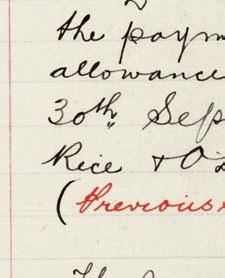 the paym
allowance
30th Sep
Rice & O'
(Previous
The